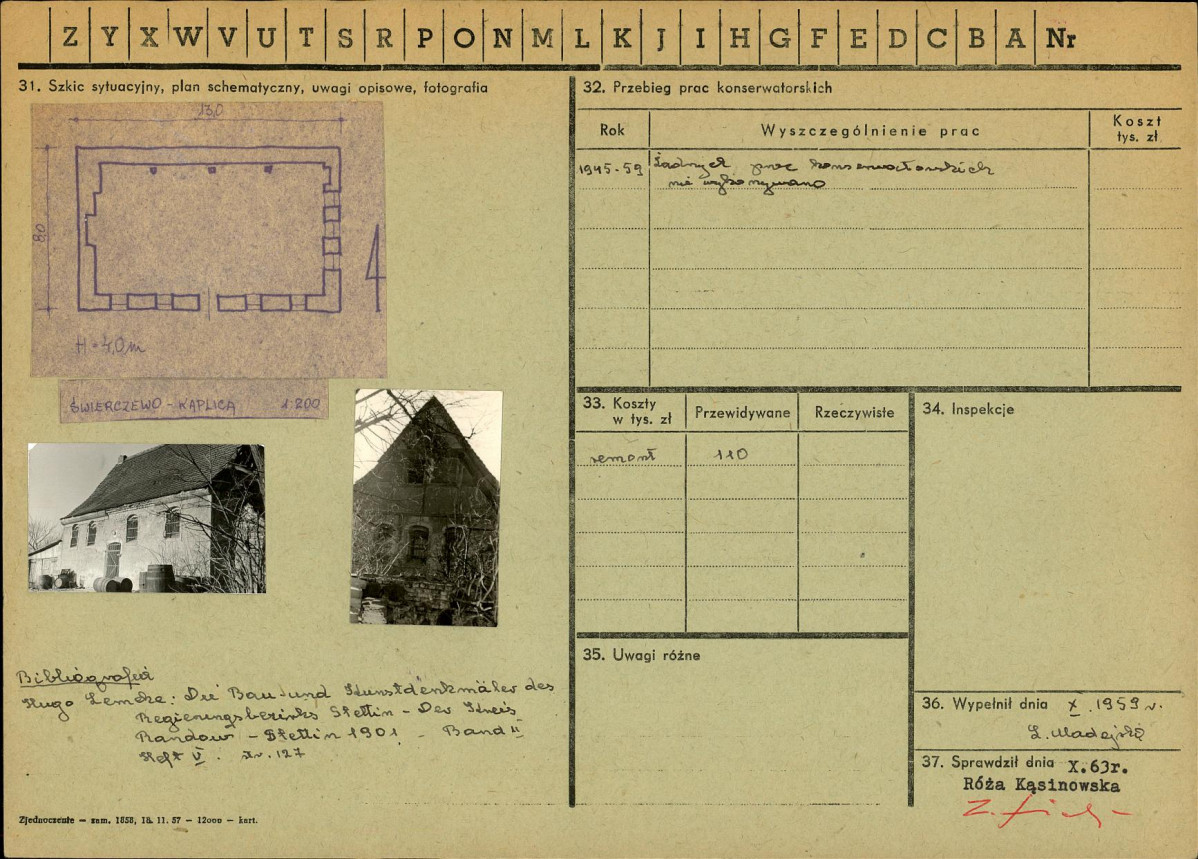 Z Y X W V U T S R P O N M L K J I H G F E D C B A Nr
31. Szkic sytuacyjny, plan schematyczny, uwagi opisowe, fotografia
13,0
8,0
H = 4,0 m
ŚWIERCZEWO - KAPLICA 1:200
Bibliografia
Hugo Lemcke: Die Bau- und Kunstdenkmäler des
Regierungsbezirks Stettin - Der Kreis
Randow - Stettin 1901 - Band II
Heft V. str. 127
Zjednoczenie — zam. 1858, 18. 11. 57 — 12000 — kart.
32. Przebieg prac konserwatorskich
Rok
Wyszczególnienie prac
Koszt
tys. zł
1945-59 Żadnych prac konserwatorskich
nie wykonywano
33. Koszty
w tys. zł
Przewidywane
Rzeczywiste
remont 110
34. Inspekcje
35. Uwagi różne
36. Wypełnił dnia X. 1959 r.
L. Madejski
37. Sprawdził dnia X.63r.
Róża Kąsinowska